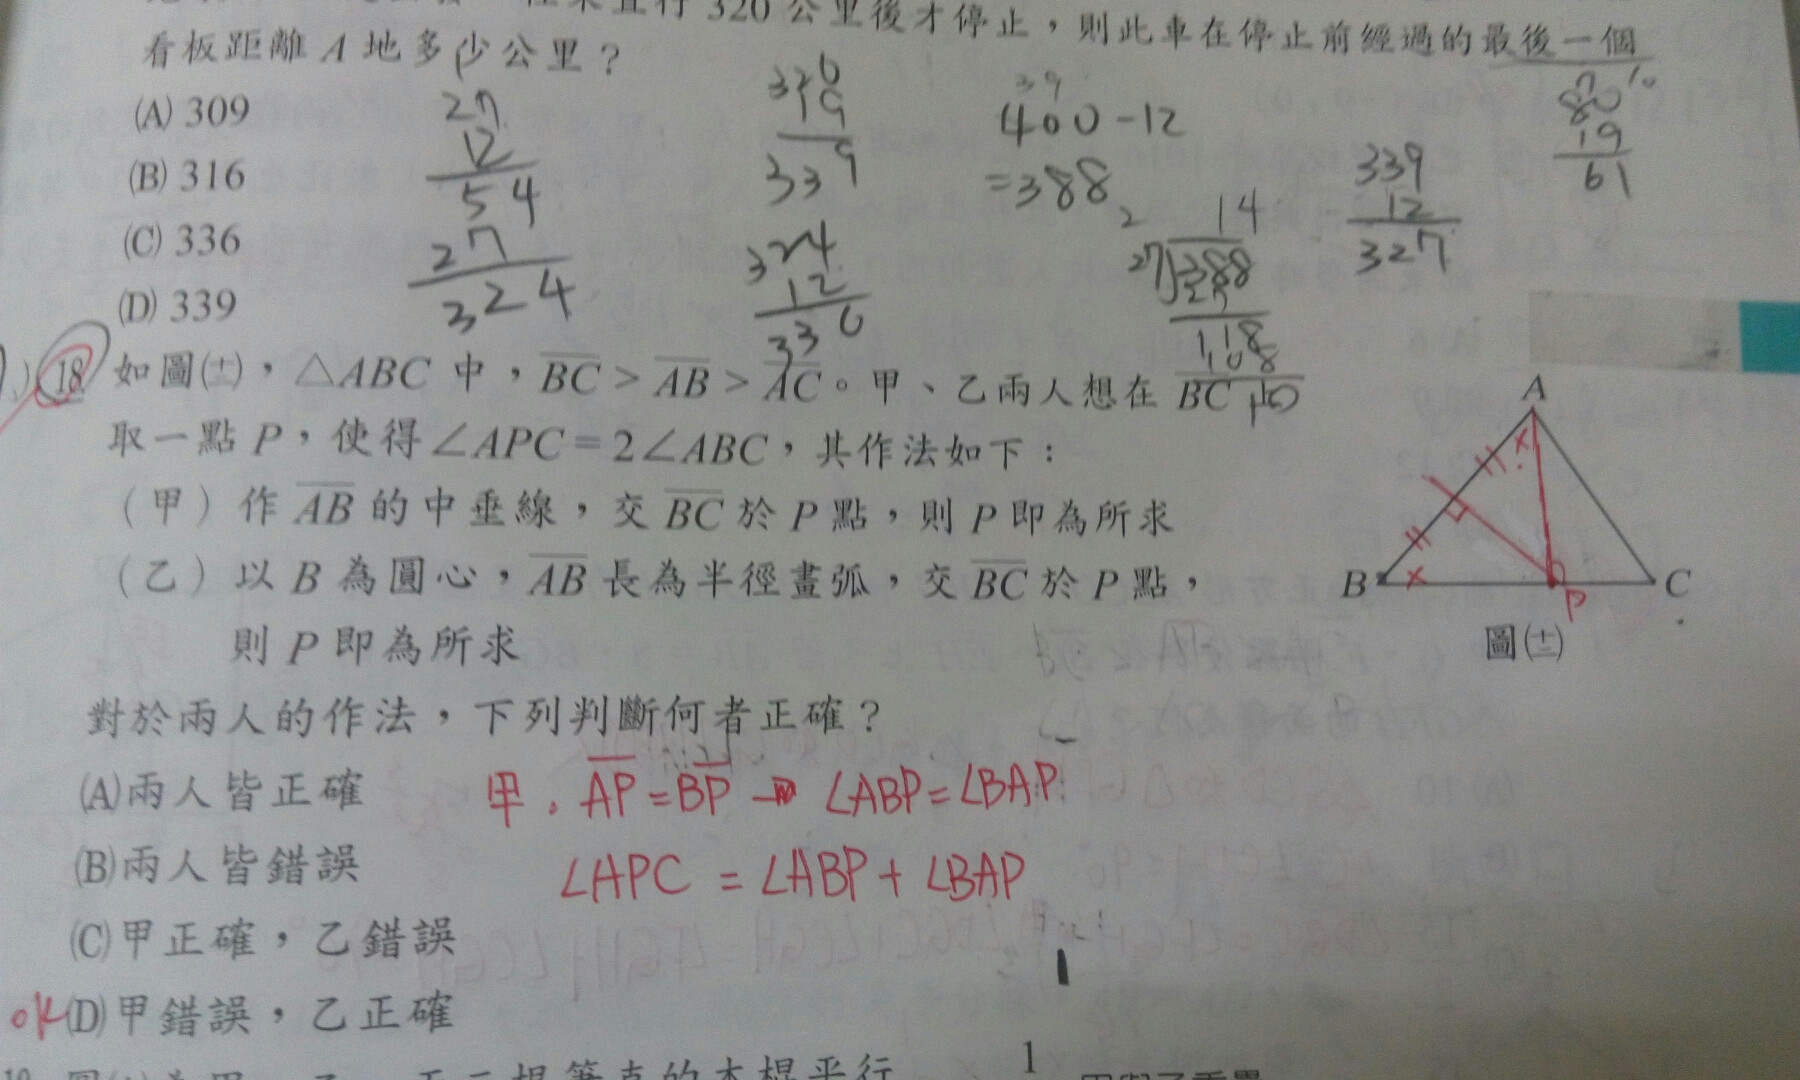 320公里後才停止，則此車在停止前經過的最後一個
看板距離 A 地多少公里？
(A) 309
(B) 316
(C) 336
(D) 339
27
12
54
27
324
19
339
324
12
336
39
400-12
=388
2
14
27 388
27
118
108
10
339
12
327
80
19
61
18 如圖(十二)，△ABC 中，BC > AB > AC。甲、乙兩人想在 BC 上
取一點 P，使得∠APC=2∠ABC，其作法如下：
(甲) 作 AB 的中垂線，交 BC 於 P 點，則 P 即為所求
(乙) 以 B 為圓心，AB 長為半徑畫弧，交 BC 於 P 點，
則 P 即為所求
A
B
P
C
圖(十二)
對於兩人的作法，下列判斷何者正確？
(A)兩人皆正確
(B)兩人皆錯誤
(C)甲正確，乙錯誤
ok (D)甲錯誤，乙正確
甲. AP=BP → ∠ABP=∠BAP
∠APC = ∠ABP + ∠BAP
1